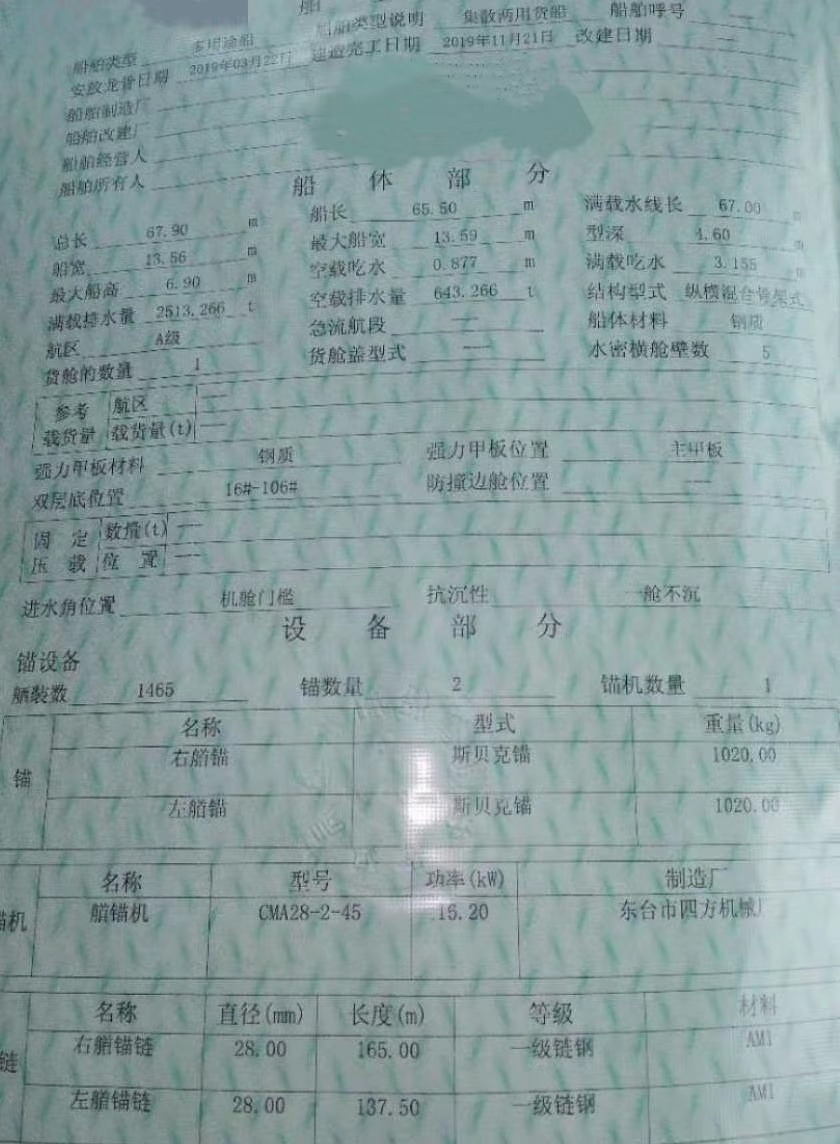 船
船舶类型 多用途船 船舶类型说明 集散两用货船 船舶呼号
安放龙骨日期 2019年03月22日 建造完工日期 2019年11月21日 改建日期 —
船舶制造厂
船舶改建厂
船舶经营人
船舶所有人
船 体 部 分
总长 67.90 m 船长 65.50 m 满载水线长 67.00 m
船宽 13.56 m 最大船宽 13.59 m 型深 4.60 m
最大船高 6.90 m 空载吃水 0.877 m 满载吃水 3.155 m
满载排水量 2513.266 t 空载排水量 643.266 t 结构型式 纵横混合骨架式
航区 A级 急流航段 — 船体材料 钢质
货舱的数量 1 货舱盖型式 — 水密横舱壁数 5
参考 航区 —
载货量 载货量(t) —
强力甲板材料 钢质 强力甲板位置 主甲板
双层底位置 16#-106# 防撞边舱位置 —
固 定 数量(t) —
压 载 位 置 —
进水角位置 机舱门槛 抗沉性 一舱不沉
设 备 部 分
锚设备
舾装数 1465 锚数量 2 锚机数量 1
名称 型式 重量(kg)
锚 右艏锚 斯贝克锚 1020.00
左艏锚 斯贝克锚 1020.00
名称 型号 功率(kW) 制造厂
锚机 艏锚机 CMA28-2-45 15.20 东台市四方机械厂
名称 直径(mm) 长度(m) 等级 材料
链 右艏锚链 28.00 165.00 一级链钢 AM1
左艏锚链 28.00 137.50 一级链钢 AM1